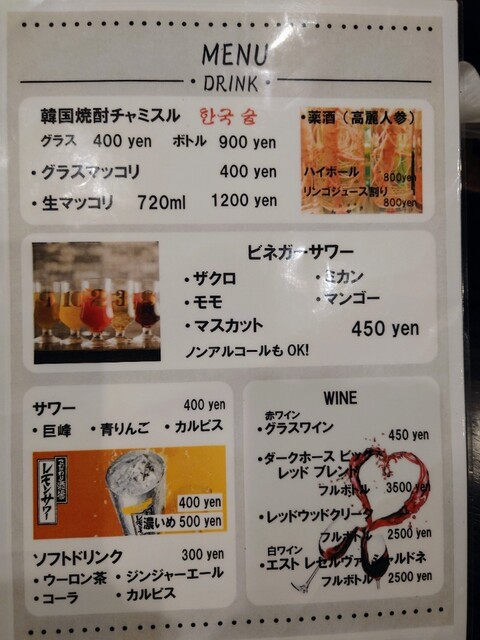 MENU
DRINK
韓国焼酎チャミスル 한국 술
グラス 400 yen ボトル 900 yen
・グラスマッコリ 400 yen
・生マッコリ 720ml 1200 yen
・薬酒（高麗人参）
ハイボール
800yen
リンゴジュース割り
800yen
ビネガーサワー
・ザクロ ・ミカン
・モモ ・マンゴー
・マスカット 450 yen
ノンアルコールも OK!
サワー 400 yen
・巨峰 ・青りんご ・カルピス
レモンサワー
400 yen
濃いめ 500 yen
ソフトドリンク 300 yen
・ウーロン茶 ・ジンジャーエール
・コーラ ・カルピス
WINE
赤ワイン
・グラスワイン 450 yen
・ダークホース ビッグ
レッド ブレンド
フルボトル 3500 yen
・レッドウッドクリーク
フルボトル 2500 yen
白ワイン
・エスト レセルヴァ シャルドネ
フルボトル 2500 yen